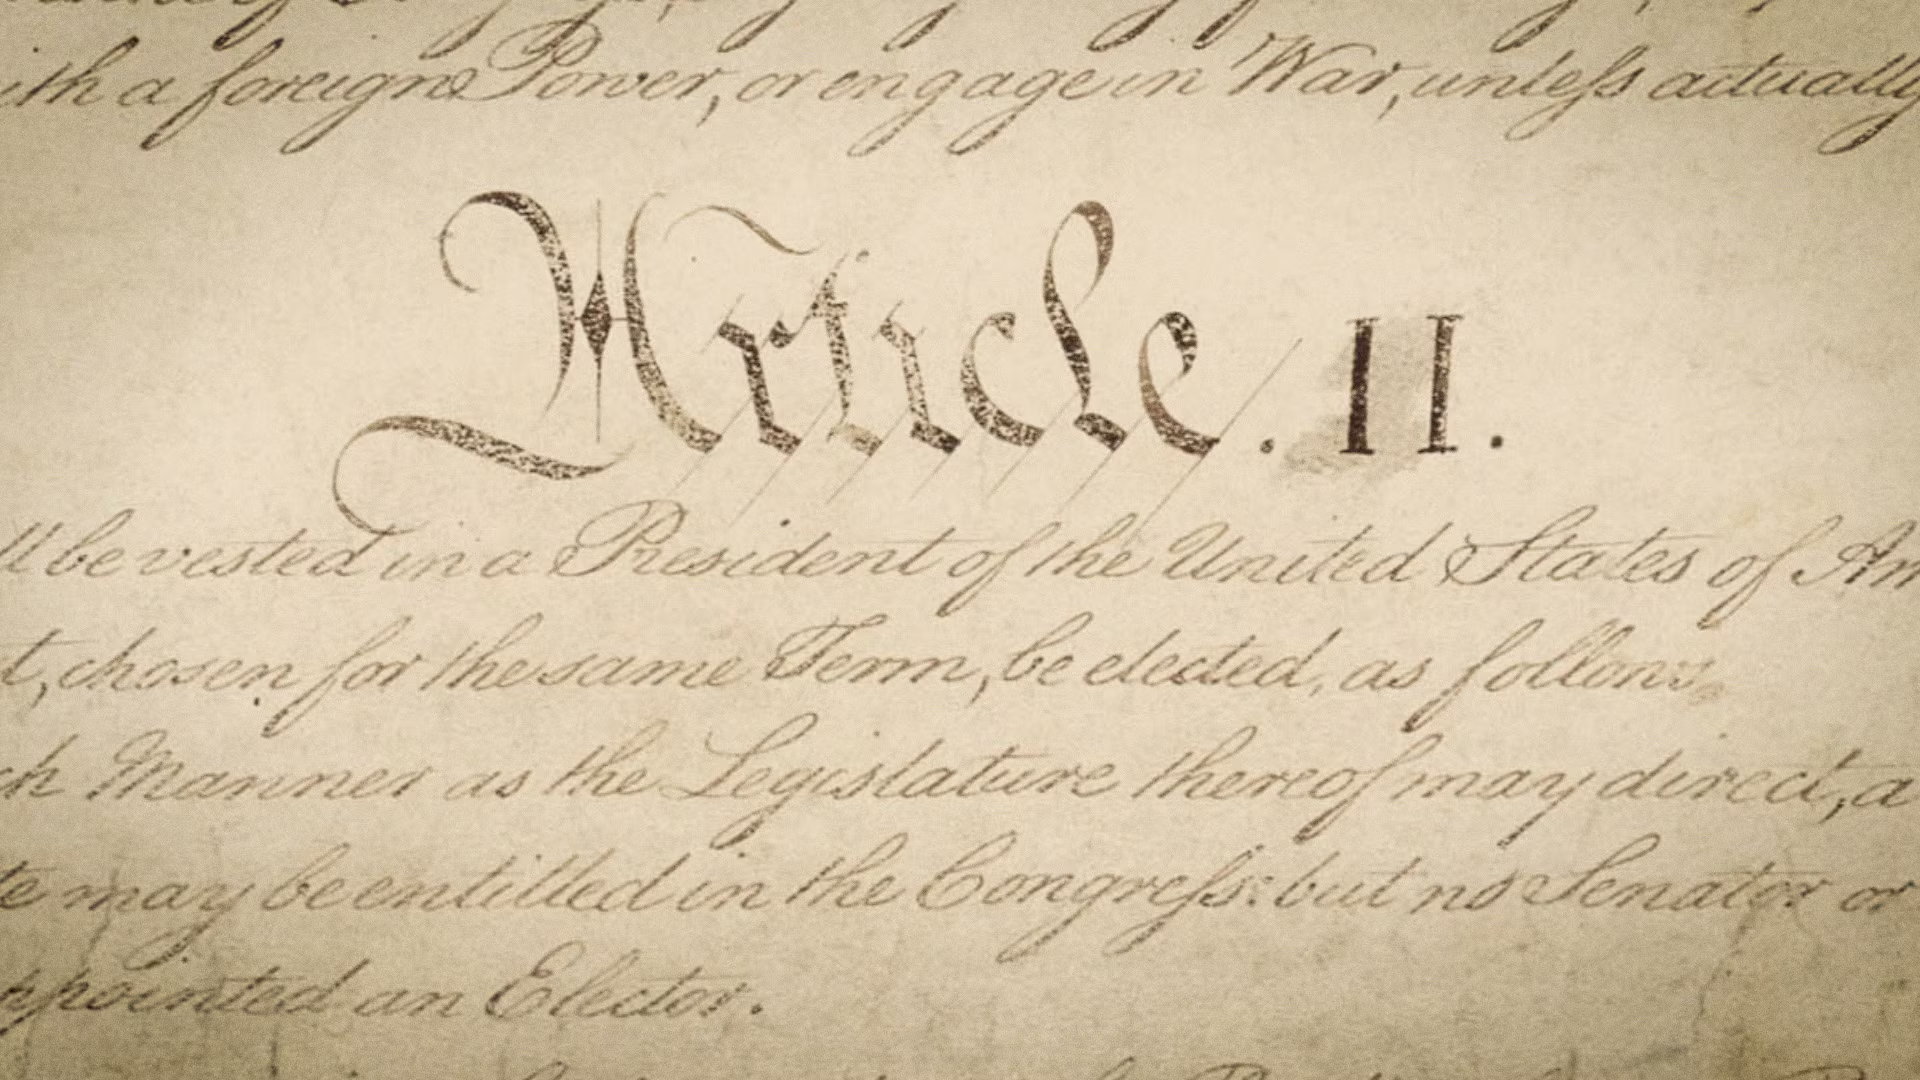 ith a foreign Power, or engage in War, unless actually
Article. II.
ll be vested in a President of the United States of Am
t, chosen for the same Term, be elected, as follows
ch Manner as the Legislature thereof may direct, a
te may be entitled in the Congress: but no Senator or
appointed an Elector.